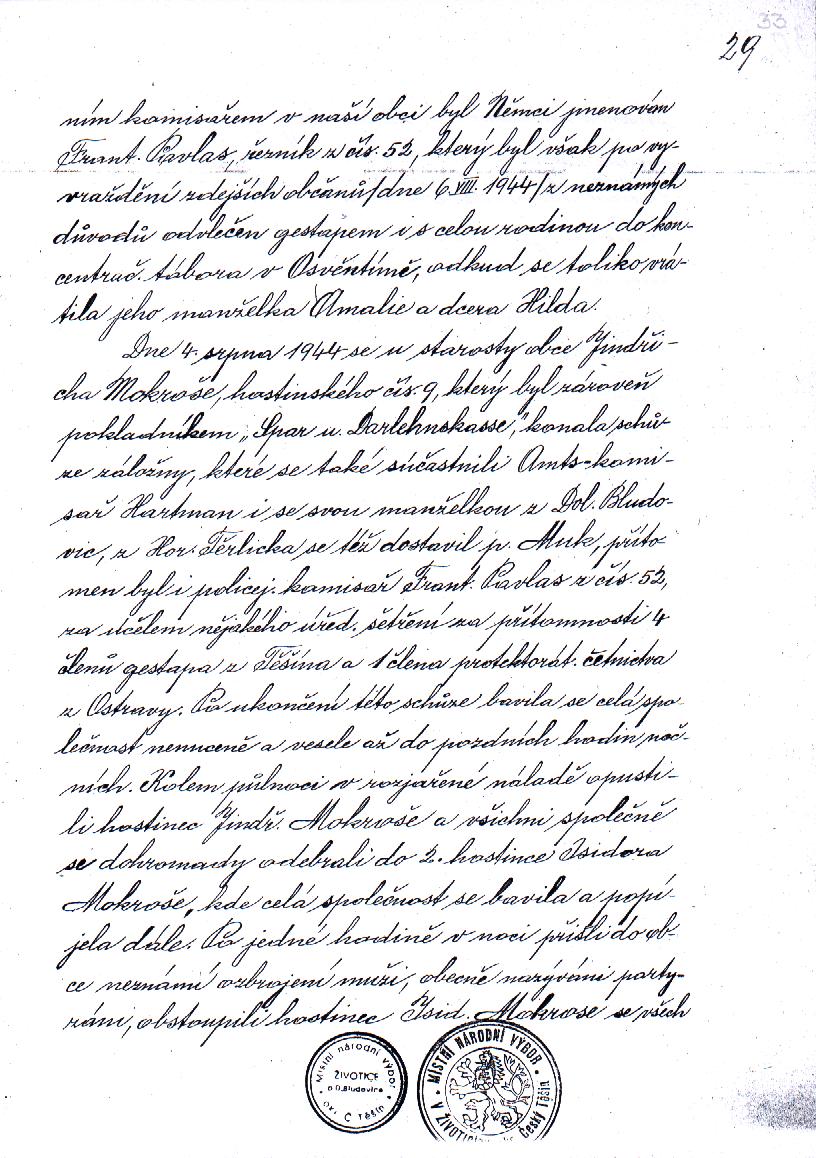 33
29
ním komisařem v naší obci byl Němci jmenován
Frant. Pavlas, řezník z čís. 52, který byl však po vy-
vraždění zdejších občanů/dne 6. VIII. 1944/z neznámých
důvodů odvlečen gestapem i s celou rodinou do kon-
centrač. tábora v Osvěntímě, odkud se toliko vrá-
tila jeho manželka Amalie a dcera Hilda.
Dne 4. srpna 1944 se u starosty obce Jindři-
cha Mokroše, hostinského čís. 9, který byl zároveň
pokladníkem „Spar u. Darlehnskasse", konala schů-
ze záložny, které se také súčastnili Amts-komi-
sař Hartman i se svou manželkou z Dol. Bludo-
vic, z Hor. Těrlicka se též dostavil p. Muk, příto-
men byl i policej. komisař Frant. Pavlas z čís. 52,
za účelem nějakého úřed. šetření za přítomnosti 4
členů gestapa z Těšína a 1 člena protektorát. četnictva
z Ostravy. Po ukončení této schůze bavila se celá spo-
lečnost nenuceně a vesele až do pozdních hodin noč-
ních. Kolem půlnoci v rozjařené náladě opusti-
li hostinec Jindř. Mokroše a všichni společně
se dohromady odebrali do 2. hostince Isidora
Mokroše, kde celá společnost se bavila a popí-
jela dále. Po jedné hodině v noci přišli do ob-
ce neznámí ozbrojení muži, obecně nazýváni party-
záni, obstoupili hostinec Isid. Mokrose se všech
Místní národní výbor
ŽIVOTICE
o D. Bludovice
okr. Č Těšín
MÍSTNÍ NÁRODNÍ VÝBOR
V ŽIVOTICÍCH
Český Těšín